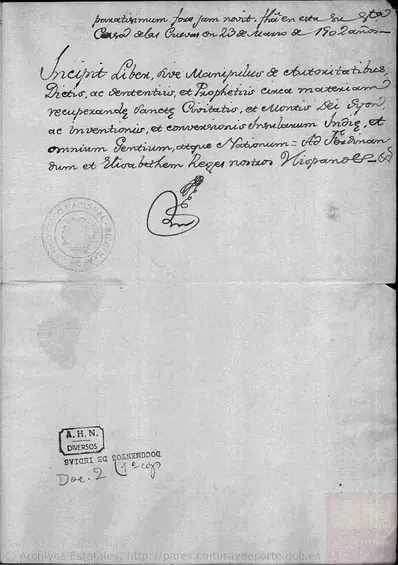 paratissimum fore jam novit. fha en esta Su Sta
Casa de las Cuevas en 23 de Marzo de 1502 años
Incipit Liber, sive Manipulus de Autoritatibus,
Dictis, ac Sententiis, et Prophetiis circa materiam
recuperandę Sanctę Civitatis, et Montis Dei Syon,
ac inventionis, et conversionis Insularum Indię, et
omnium Gentium, atque Nationum = Ad Ferdinan
dum et Elisabethem Reges nostros Hispanos &
A. H. N.
DIVERSOS
DOCUMENTOS DE INDIAS
Doc. 2
© Archivos Estatales, http://pares.culturaydeporte.gob.es